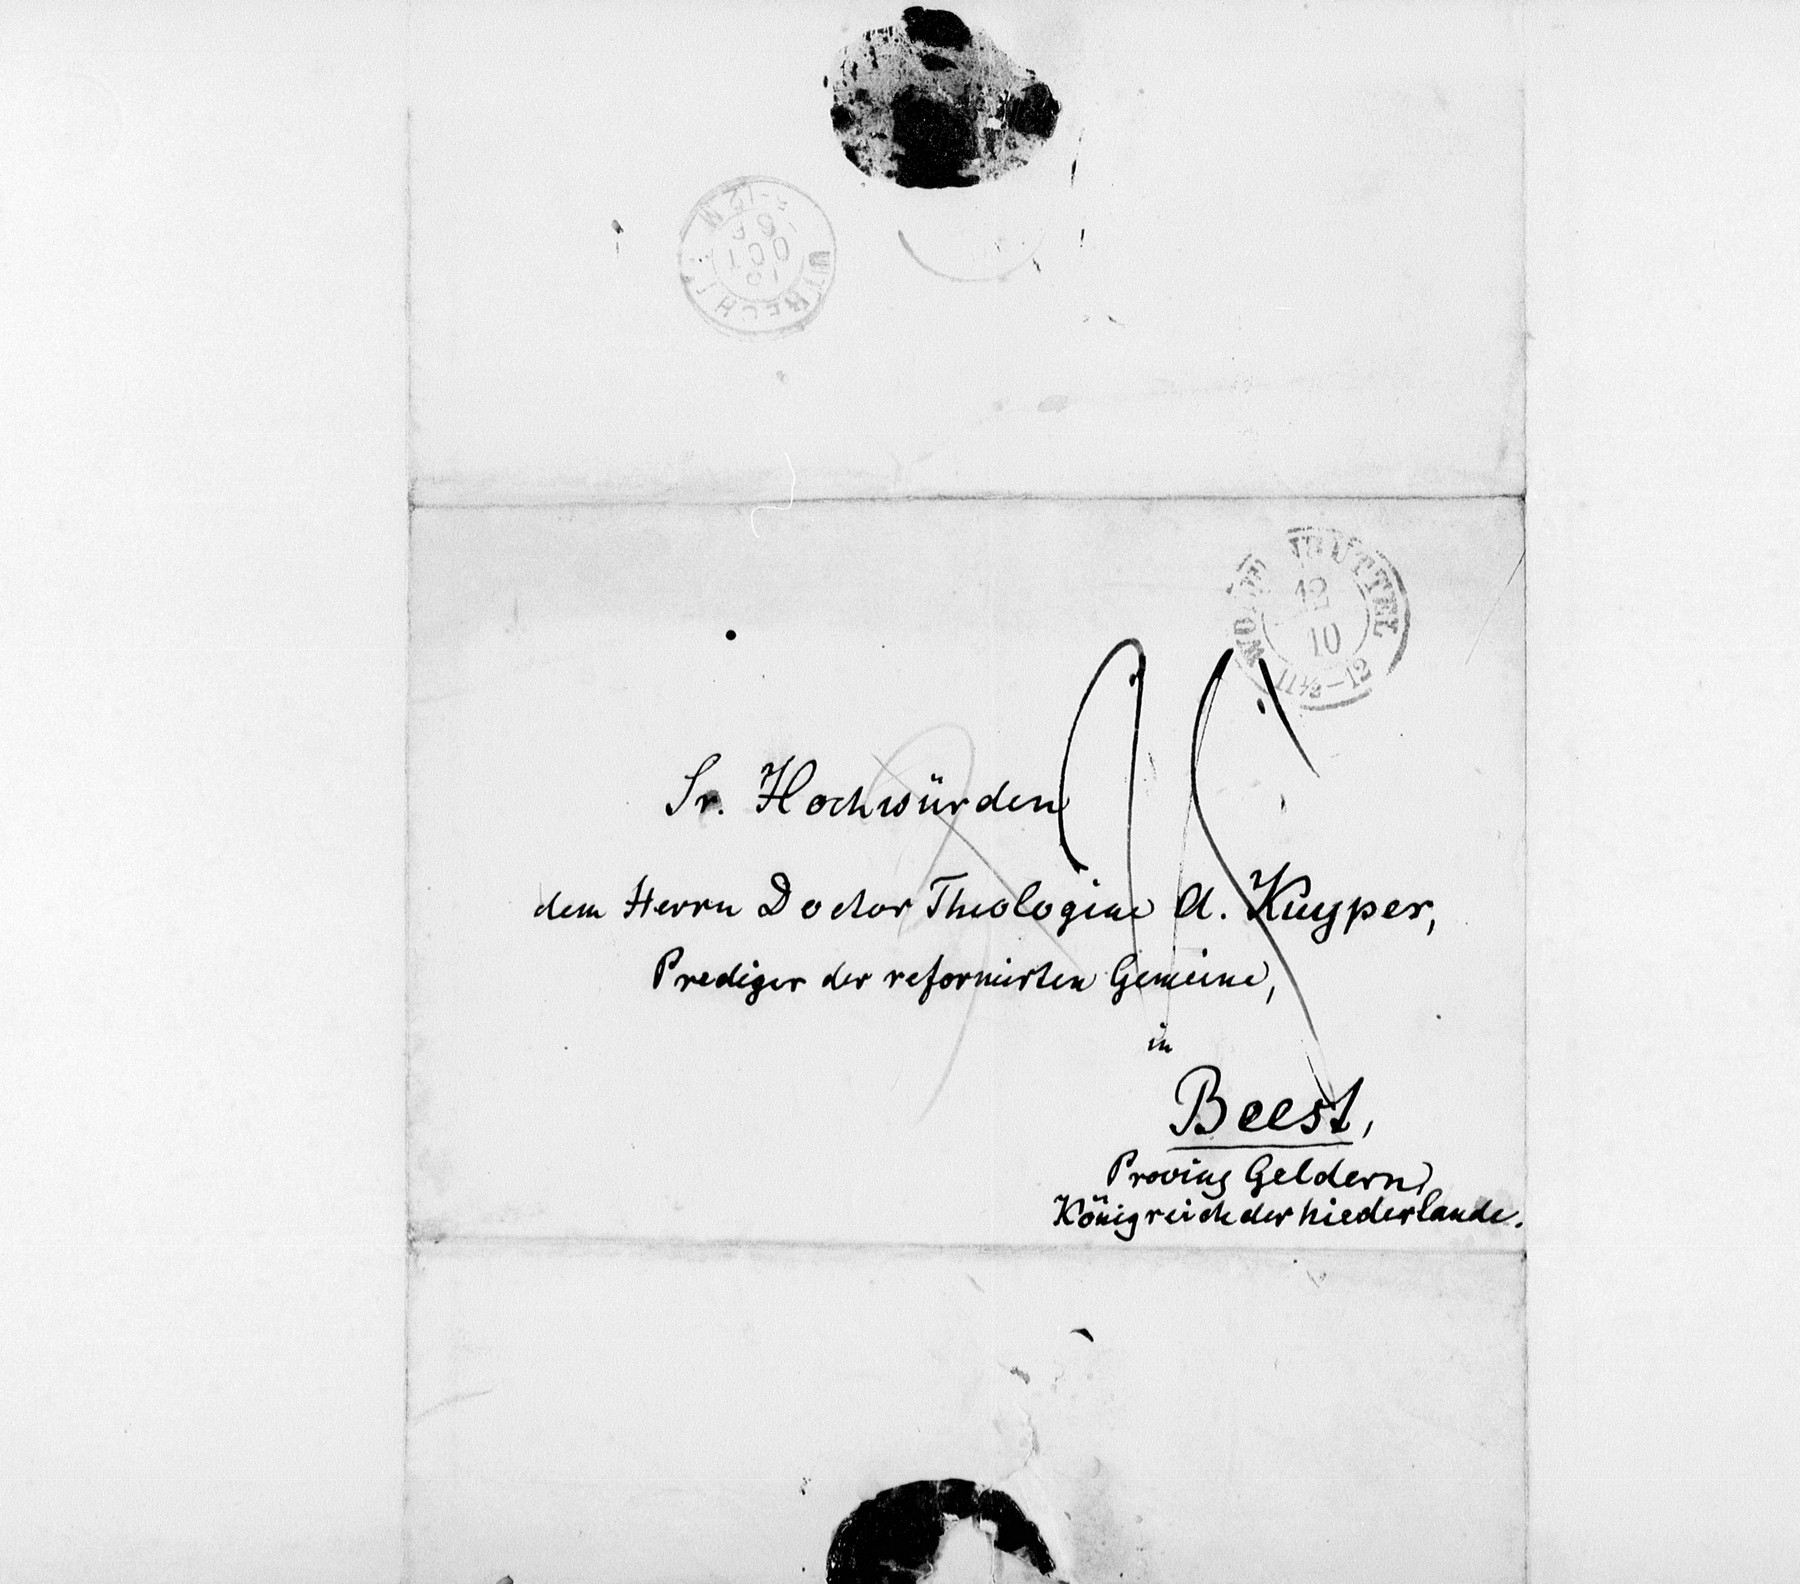 UTRECHT
OCT
WOLFENBÜTTEL
12
10
11½-12
Sr. Hochwürden
dem Herrn Doctor Theologiae A. Kuyper,
Prediger der reformirten Gemeine,
in
Beest,
Provinz Geldern,
Königreich der Niederlande.